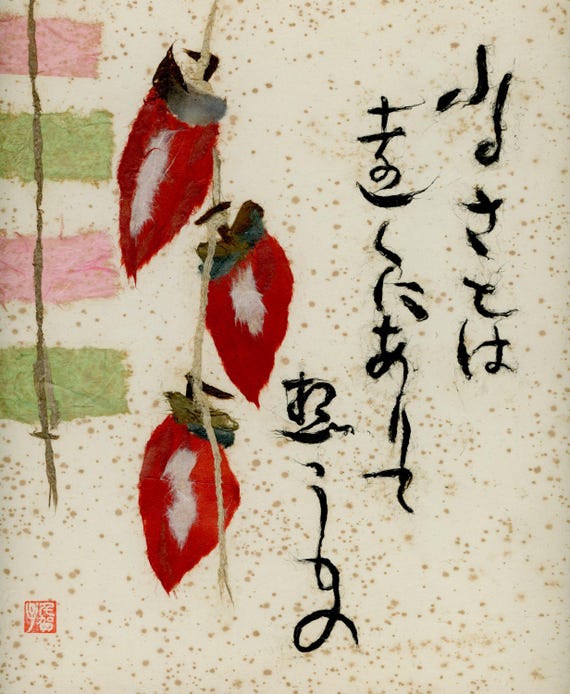 ふるさとは
遠くにありて
想うもの